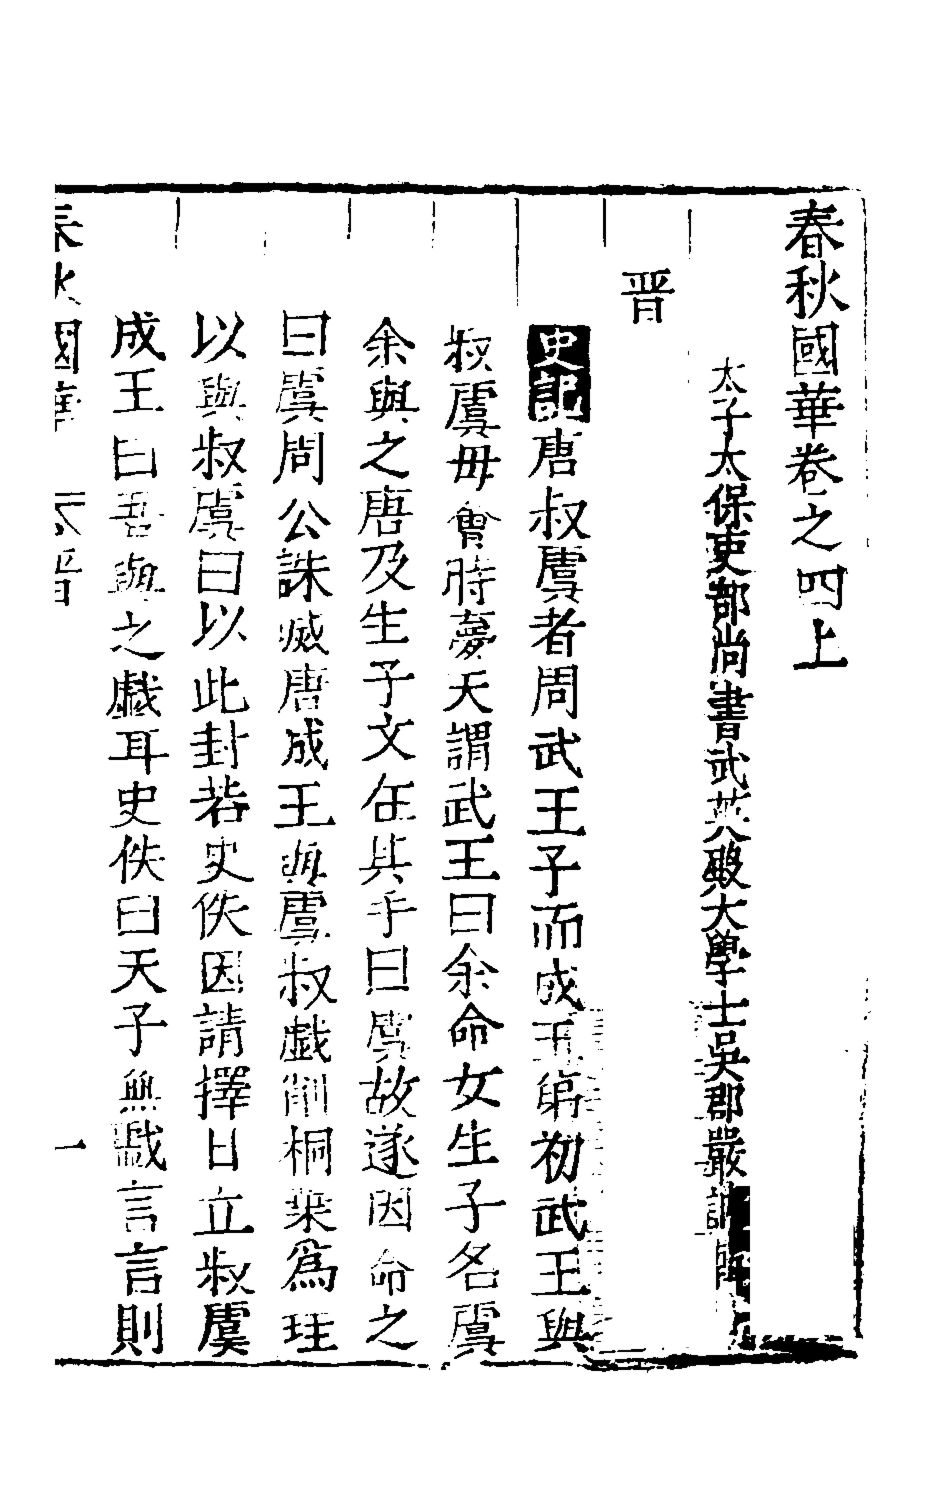 春秋國華卷之四上
太子太保吏部尚書武英殿大學士吳郡嚴訥
晋
史記唐叔虞者周武王子而成王弟初武王與
叔虞毋會時夢天謂武王曰余命女生子名虞
余與之唐及生子文在其手曰虞故遂因命之
曰虞周公誅滅唐成王與虞叔戯削桐葉爲珪
以與叔虞曰以此封若史佚因請擇日立叔虞
成王曰吾與之戯耳史佚曰天子無戲言言則
春秋國華 晋 一